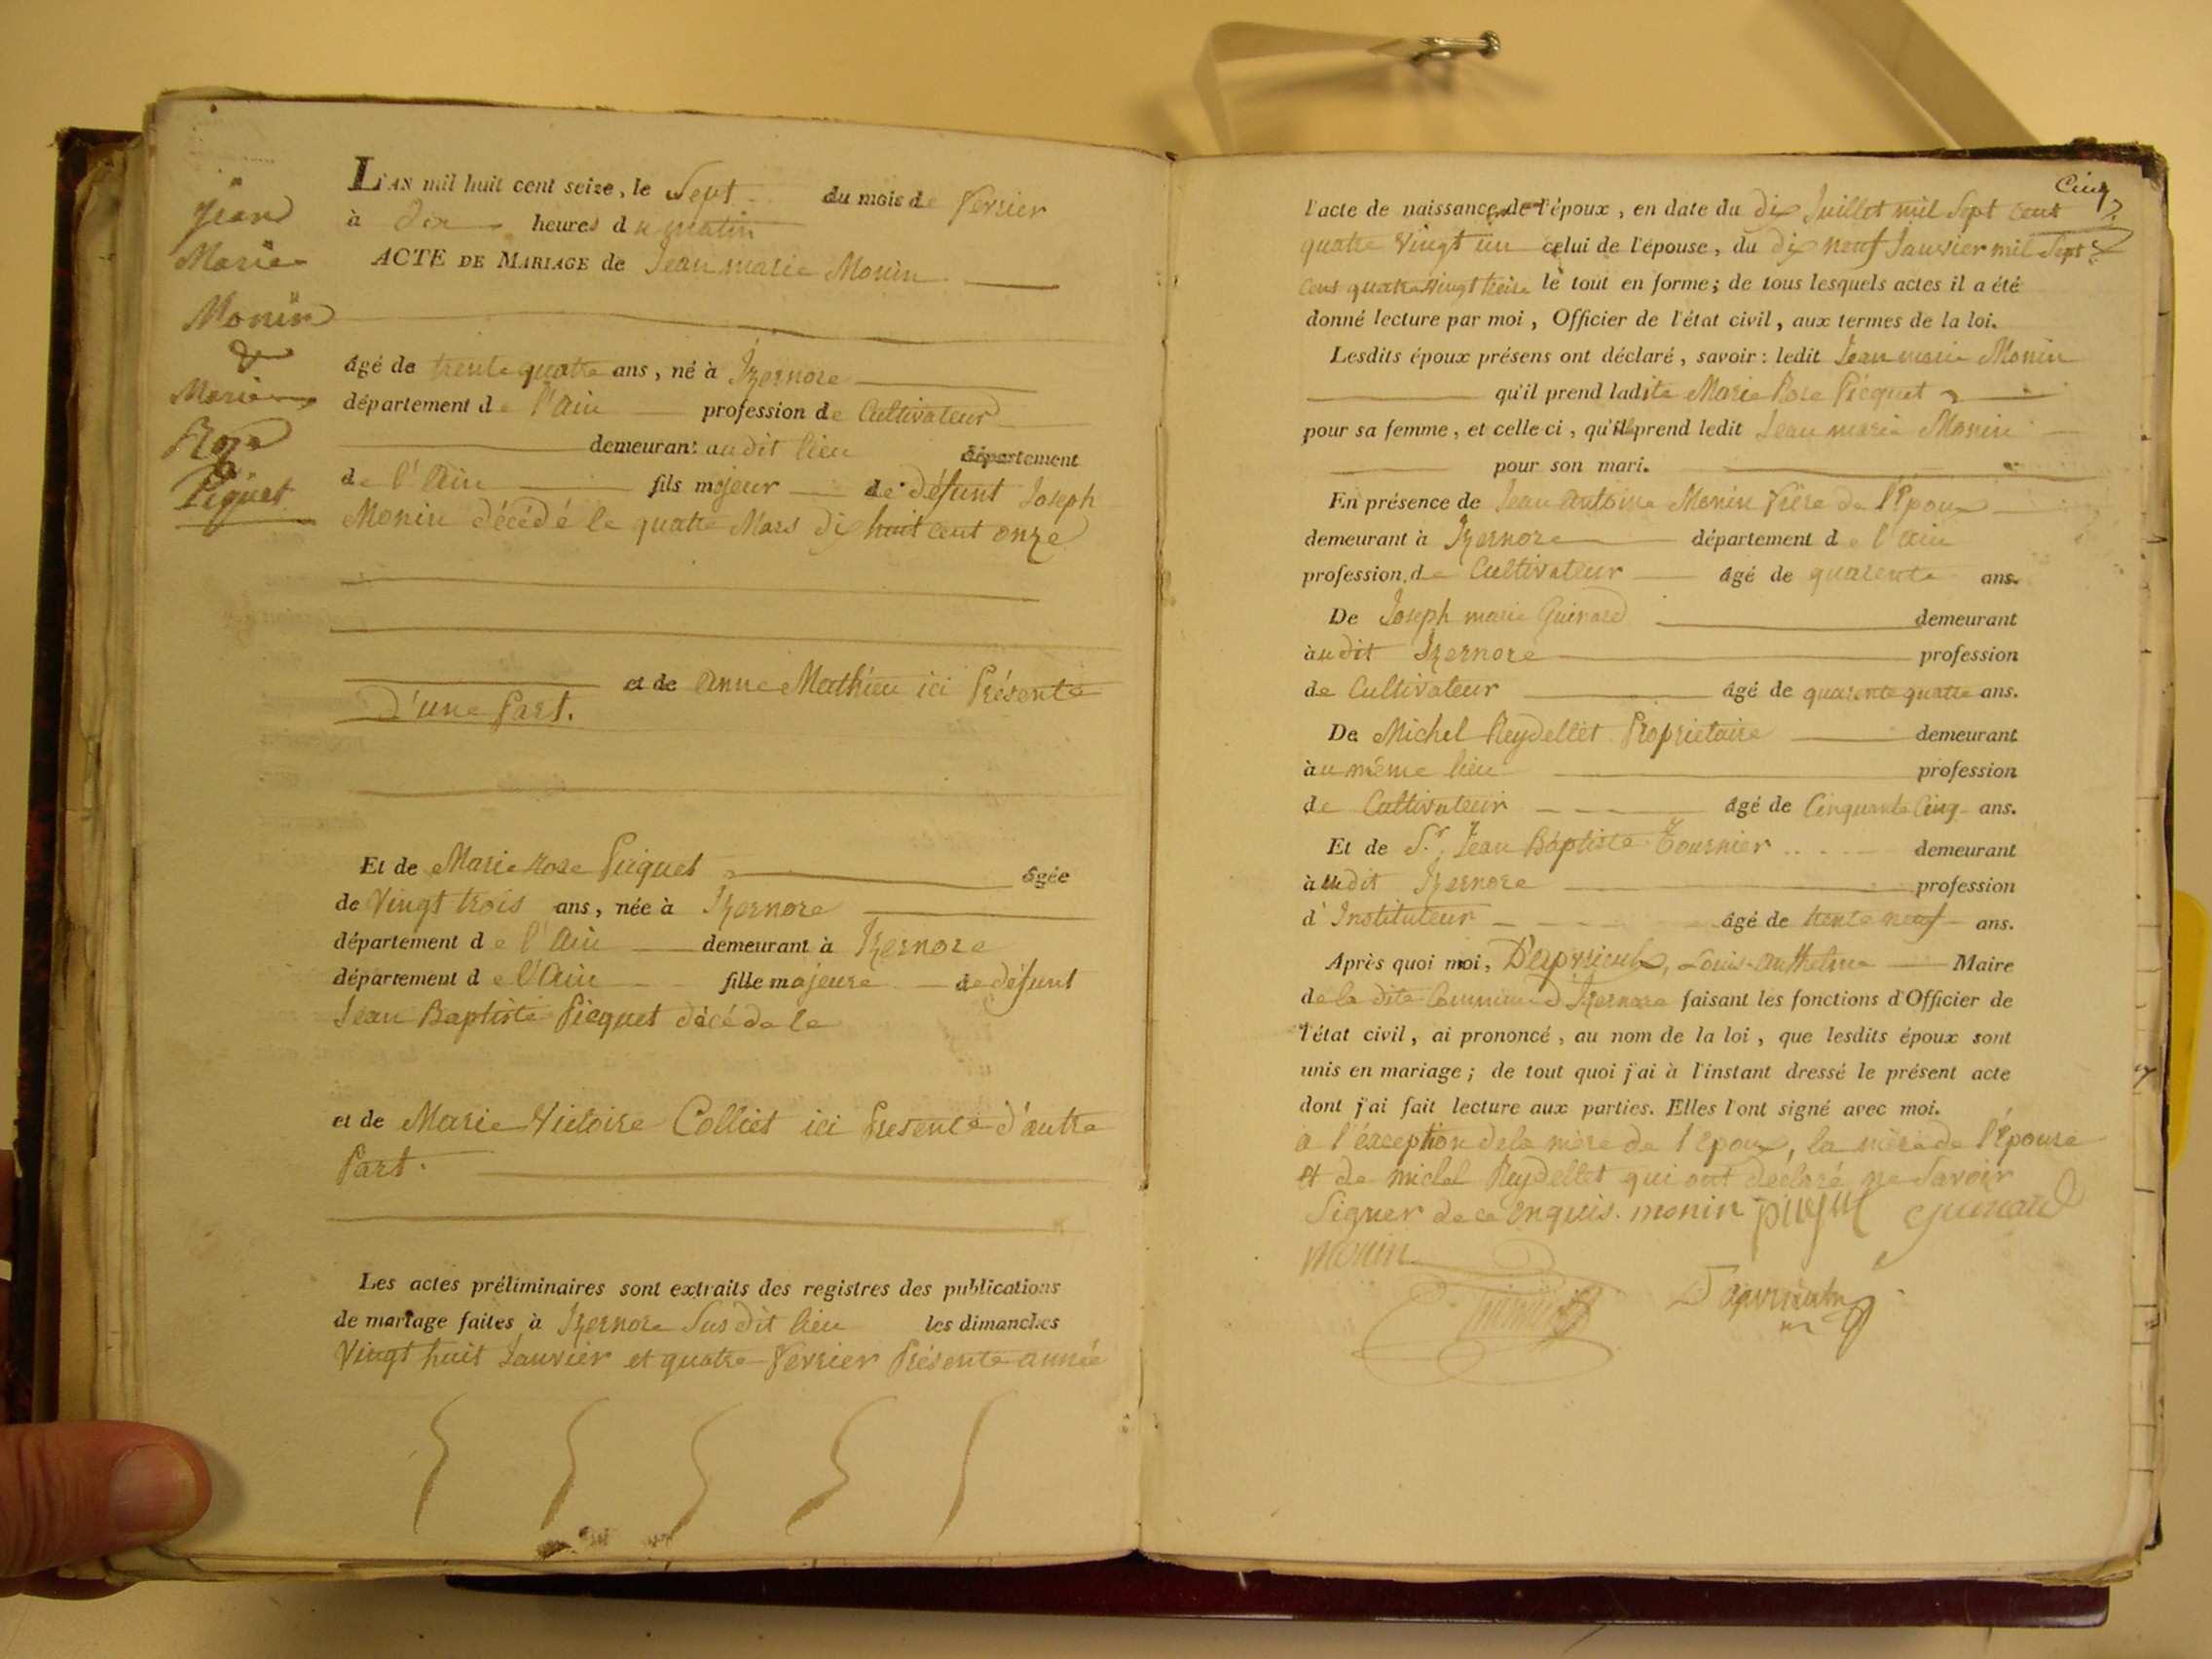 Jean
Marie
Monin
&
Marie
Roze
Piguet
L'AN mil huit cent seize, le Sept du mois de Fevrier
à dix heures du matin
ACTE DE MARIAGE de Jean marie Monin
âgé de trente quatre ans, né à Izernore
département de l'Ain profession de Cultivateur
demeurant audit lieu département
de l'Ain fils majeur de défunt Joseph
Monin décédé le quatre Mars dix huit cent onze
et de Anne Mathieu ici Présente
D'une Part.
Et de Marie roze Picquet âgée
de Vingt trois ans, née à Izernore
département de l'Ain demeurant à Izernore
département de l'Ain fille majeure de défunt
Jean Baptiste Picquet décédé le
et de Marie Victoire Colliet ici Présente d'autre
Part.
Les actes préliminaires sont extraits des registres des publications
de mariage faites à Izernore Susdit lieu les dimanches
Vingt huit Janvier et quatre Fevrier Présente année
Cinq
l'acte de naissance de l'époux, en date du dix Juillet mil Sept cent
quatre Vingt un celui de l'épouse, du dix neuf Janvier mil Sept
Cent quatre Vingt treize le tout en forme; de tous lesquels actes il a été
donné lecture par moi, Officier de l'état civil, aux termes de la loi.
Lesdits époux présens ont déclaré, savoir: ledit Jean marie Monin
qu'il prend ladite Marie Rose Picquet
pour sa femme, et celle ci, qu'elle prend ledit Jean marie Monin
pour son mari.
En présence de Jean Antoine Monin Frère de l'Epoux
demeurant à Izernore département de l'Ain
profession de Cultivateur âgé de quarente ans.
De Joseph marie Guinard demeurant
àudit Izernore profession
de Cultivateur âgé de quarente quatre ans.
De Michel Reydellet Propriétaire demeurant
àu même lieu profession
de Cultivateur âgé de Cinquante Cinq ans.
Et de Sr. Jean Baptiste Tournier demeurant
àudit Izernore profession
d'Instituteur âgé de trente neuf ans.
Après quoi moi, Louis Anthelme Maire
de la dite Commune d'Izernore faisant les fonctions d'Officier de
l'état civil, ai prononcé, au nom de la loi, que lesdits époux sont
unis en mariage; de tout quoi j'ai à l'instant dressé le présent acte
dont j'ai fait lecture aux parties. Elles l'ont signé avec moi.
à l'éxception dela mère de l'Epoux, la mère de l'Epouse
et de michel Reydellet qui ont déclaré ne Savoir
Signer de ce Enquis. monin guinard
monin